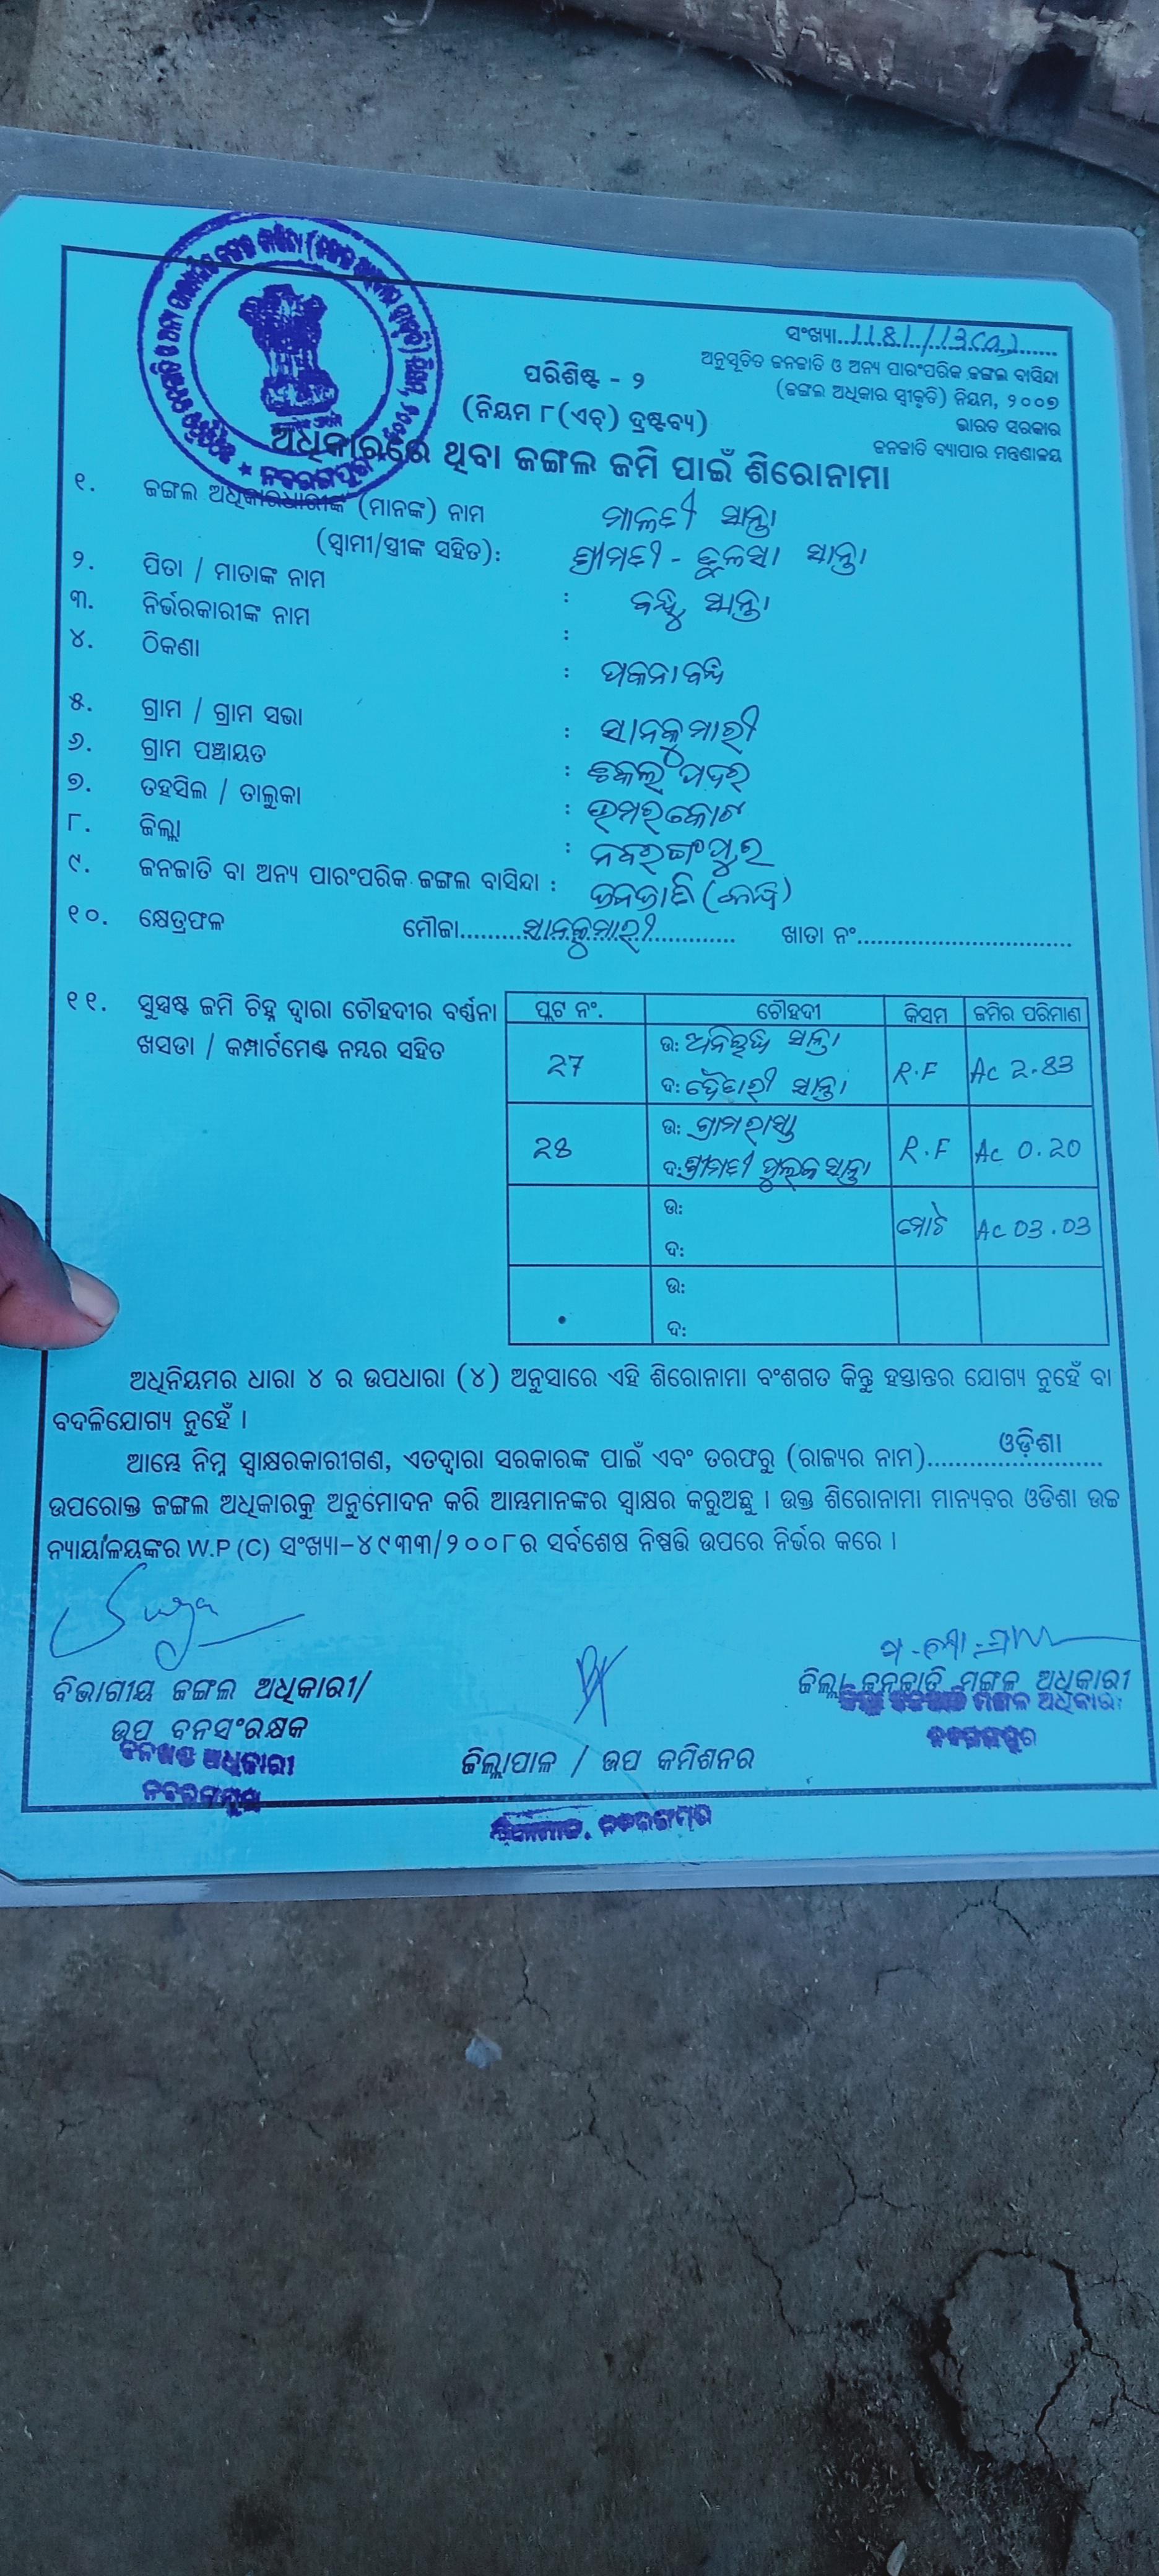 ସଂଖ୍ୟା...1181/13(a)...
ଅନୁସୂଚିତ ଜନଜାତି ଓ ଅନ୍ୟ ପାରଂପରିକ ଜଙ୍ଗଲ ବାସିନ୍ଦା
(ଜଙ୍ଗଲ ଅଧିକାର ସ୍ୱୀକୃତି) ନିୟମ, ୨୦୦୭
ଭାରତ ସରକାର
ଜନଜାତି ବ୍ୟାପାର ମନ୍ତ୍ରଣାଳୟ
ପରିଶିଷ୍ଟ - ୨
(ନିୟମ ୮(ଏଚ୍) ଦ୍ରଷ୍ଟବ୍ୟ)
ଅଧିକାରରେ ଥିବା ଜଙ୍ଗଲ ଜମି ପାଇଁ ଶିରୋନାମା
୧. ଜଙ୍ଗଲ ଅଧିକାରଧାରୀଙ୍କ (ମାନଙ୍କ) ନାମ ମାଳତୀ ସାନ୍ତା
(ସ୍ୱାମୀ/ସ୍ତ୍ରୀଙ୍କ ସହିତ): ଶ୍ରୀମତୀ - ତୁଳସା ସାନ୍ତା
୨. ପିତା / ମାତାଙ୍କ ନାମ : ସାନ୍ତା
୩. ନିର୍ଭରକାରୀଙ୍କ ନାମ :
୪. ଠିକଣା :
୫. ଗ୍ରାମ / ଗ୍ରାମ ସଭା : ସାନକୁମାରୀ
୬. ଗ୍ରାମ ପଞ୍ଚାୟତ :
୭. ତହସିଲ / ତାଲୁକା : ଉମରକୋଟ
୮. ଜିଲ୍ଲା : ନବରଙ୍ଗପୁର
୯. ଜନଜାତି ବା ଅନ୍ୟ ପାରଂପରିକ ଜଙ୍ଗଲ ବାସିନ୍ଦା : ଜନଜାତି
୧୦. କ୍ଷେତ୍ରଫଳ ମୌଜା...ସାନକୁମାରୀ... ଖାତା ନଂ...
୧୧. ସୁସ୍ପଷ୍ଟ ଜମି ଚିହ୍ନ ଦ୍ୱାରା ଚୌହଦୀର ବର୍ଣ୍ଣନା
ଖସଡା / କମ୍ପାର୍ଟମେଣ୍ଟ ନମ୍ବର ସହିତ
ପ୍ଲଟ ନଂ. ଚୌହଦୀ କିସମ ଜମିର ପରିମାଣ
27 ଉ: ଅନିରୁଦ୍ଧ ସାନ୍ତା R.F Ac 2.83
ଦ: ଦୈତାରୀ ସାନ୍ତା
28 ଉ: ଗ୍ରାମ ରାସ୍ତା R.F Ac 0.20
ଦ: ଶ୍ରୀମତୀ ସାନ୍ତା
ଉ: ମୋଟ Ac 03.03
ଦ:
ଉ:
ଦ:
ଅଧିନିୟମର ଧାରା ୪ ର ଉପଧାରା (୪) ଅନୁସାରେ ଏହି ଶିରୋନାମା ବଂଶଗତ କିନ୍ତୁ ହସ୍ତାନ୍ତର ଯୋଗ୍ୟ ନୁହେଁ ବା
ବଦଳିଯୋଗ୍ୟ ନୁହେଁ ।
ଆମ୍ଭେ ନିମ୍ନ ସ୍ୱାକ୍ଷରକାରୀଗଣ, ଏତଦ୍ୱାରା ସରକାରଙ୍କ ପାଇଁ ଏବଂ ତରଫରୁ (ରାଜ୍ୟର ନାମ)...ଓଡ଼ିଶା...
ଉପରୋକ୍ତ ଜଙ୍ଗଲ ଅଧିକାରକୁ ଅନୁମୋଦନ କରି ଆମ୍ଭମାନଙ୍କର ସ୍ୱାକ୍ଷର କରୁଅଛୁ । ଉକ୍ତ ଶିରୋନାମା ମାନ୍ୟବର ଓଡିଶା ଉଚ୍ଚ
ନ୍ୟାୟାଳୟଙ୍କର W.P (C) ସଂଖ୍ୟା-୪୯୩୩/୨୦୦୮ର ସର୍ବଶେଷ ନିଷ୍ପତ୍ତି ଉପରେ ନିର୍ଭର କରେ ।
ବିଭାଗୀୟ ଜଙ୍ଗଲ ଅଧିକାରୀ/
ଉପ ବନସଂରକ୍ଷକ
ବନଖଣ୍ଡ ଅଧିକାରୀ
ନବରଙ୍ଗପୁର
ଜିଲ୍ଲାପାଳ / ଉପ କମିଶନର
ଜିଲ୍ଲାପାଳ, ନବରଙ୍ଗପୁର
ଜିଲ୍ଲା ଜନଜାତି ମଙ୍ଗଳ ଅଧିକାରୀ
ଜିଲ୍ଲା ଜନଜାତି ମଙ୍ଗଳ ଅଧିକାରୀ
ନବରଙ୍ଗପୁର